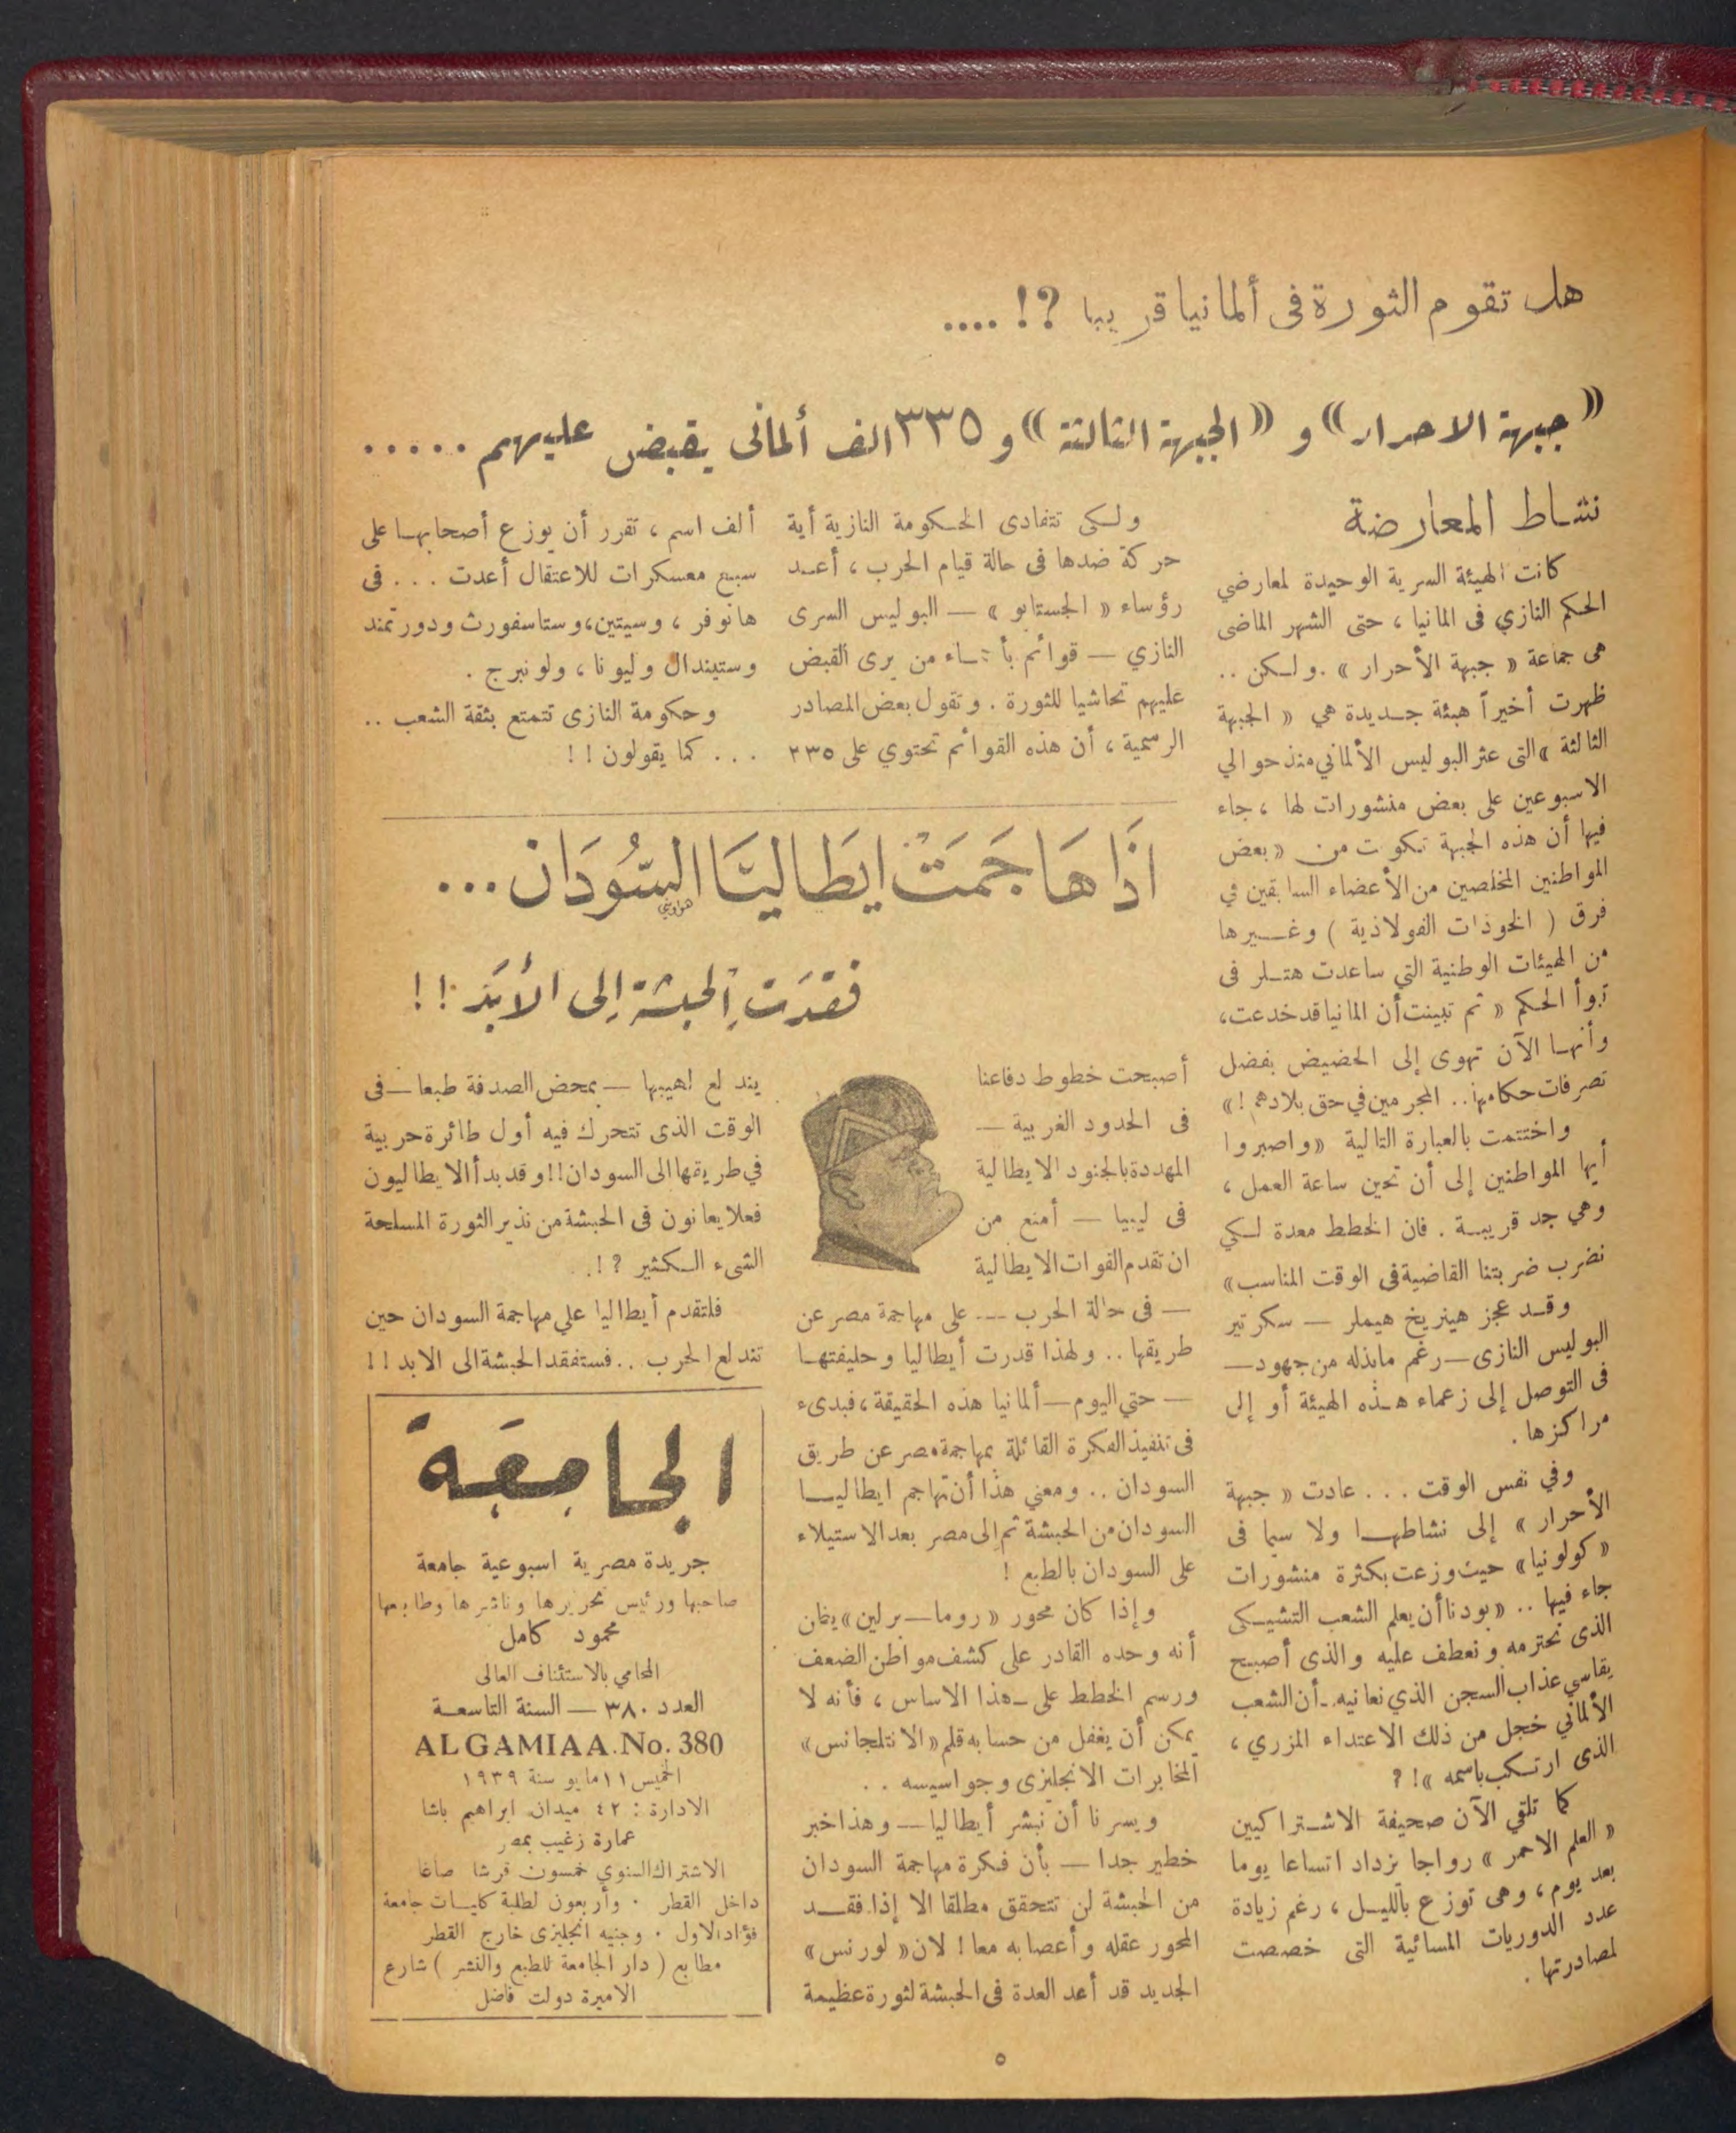 هل تقوم الثورة فى ألمانيا قريبا ?! ....
« جبهة الاحرار » و « الجبهة الثالثة » و ٣٣٥ الف ألمانى يقبض عليهم .....
نشاط المعارضة
كانت الهيئة السرية الوحيدة لمعارضي
الحكم النازي فى المانيا ، حتى الشهر الماضى
هى جماعة « جبهة الأحرار » . ولكن ..
ظهرت أخيراً هيئة جديدة هي « الجبهة
الثالثة » التى عثر البوليس الألماني منذ حوالي
الاسبوعين على بعض منشورات لها ، جاء
فيها أن هذه الجبهة تكونت من « بعض
المواطنين المخلصين من الأعضاء السابقين في
فرق ( الخوذات الفولاذية ) وغيرها
من الهيئات الوطنية التي ساعدت هتلر فى
تبوأ الحكم « ثم تبينت أن المانيا قد خدعت ،
وأنها الآن تهوى إلى الحضيض بفضل
تصرفات حكامها .. المجرمين في حق بلادهم ! »
واختتمت بالعبارة التالية « واصبروا
أيها المواطنين إلى أن تحين ساعة العمل ،
وهي جد قريبة . فان الخطط معدة لكي
نضرب ضربتنا القاضية فى الوقت المناسب »
وقد عجز هينريخ هيملر — سكرتير
البوليس النازى — رغم مابذله من جهود —
فى التوصل إلى زعماء هذه الهيئة أو إلى
مراكزها .
وفي نفس الوقت . . . عادت « جبهة
الأحرار » إلى نشاطها ولا سيما فى
« كولونيا » حيث وزعت بكثرة منشورات
جاء فيها .. « بودنا أن يعلم الشعب التشيكى
الذى نحترمه ونعطف عليه والذى أصبح
يقاسي عذاب السجن الذي نعانيه . أن الشعب
الألماني خجل من ذلك الاعتداء المزري ،
الذى ارتكب باسمه » ! ?
كما تلقي الآن صحيفة الاشتراكيين
« العلم الاحمر » رواجا يزداد اتساعا يوما
بعد يوم ، وهى توزع بالليل ، رغم زيادة
عدد الدوريات المسائية التى خصصت
لمصادرتها .
ولكى تتفادى الحكومة النازية أية
حركة ضدها فى حالة قيام الحرب ، أعد
رؤساء « الجستابو » — البوليس السرى
النازي — قوائم بأسماء من يرى القبض
عليهم تحاشيا للثورة . وتقول بعض المصادر
الرسمية ، أن هذه القوائم تحتوي على ٢٣٥
ألف اسم ، تقرر أن يوزع أصحابها على
سبع معسكرات للاعتقال أعدت . . . فى
هانوفر ، وسيتين ، وستاسفورث ودورتمند
وستيندال وليونا ، ولونبرج .
وحكومة النازى تتمتع بثقة الشعب ..
. . . كما يقولون ! !
اذَا هَاجَمَتْ ايطَاليَّا السُّودَان ...
هواويني
فَقَدَتِ الحبشة إلى الأبَد ! !
أصبحت خطوط دفاعنا
فى الحدود الغربية —
المهددة بالجنود الايطالية
فى ليبيا — أمنع من
ان تقدم القوات الايطالية
— فى حالة الحرب --- على مهاجمة مصر عن
طريقها .. ولهذا قدرت أيطاليا وحليفتها
— حتي اليوم — ألمانيا هذه الحقيقة ، فبدىء
فى تنفيذ الفكرة القائلة بمهاجمة مصر عن طريق
السودان .. ومعني هذا أن تهاجم ايطاليا
السودان من الحبشة ثم إلى مصر بعد الاستيلاء
على السودان بالطبع !
وإذا كان محور « روما — برلين » يظن
أنه وحده القادر على كشف مواطن الضعف
ورسم الخطط على هذا الاساس ، فأنه لا
يمكن أن يغفل من حسابه قلم « الانتلجانس »
المخابرات الانجليزى وجواسيسه . .
ويسرنا أن نبشر أيطاليا — وهذا خبر
خطير جدا — بأن فكرة مهاجمة السودان
من الحبشة لن تتحقق مطلقا الا إذا فقد
المحور عقله وأعصابه معا ! لان « لورنس »
الجديد قد أعد العدة فى الحبشة لثورة عظيمة
يندلع لهيبها — بمحض الصدفة طبعا — فى
الوقت الذى تتحرك فيه أول طائرة حربية
في طريقها الى السودان !! وقد بدأ الايطاليون
فعلا يعانون فى الحبشة من نذير الثورة المسلحة
الشىء الكثير ? ! .
فلتقدم أيطاليا علي مهاجمة السودان حين
تندلع الحرب .. فستفقد الحبشة الى الابد ! !
الجامِعَة
جريدة مصرية اسبوعية جامعة
صاحبها ورئيس تحريرها وناشرها وطابعها
محمود كامل
المحامي بالاستئناف العالى
العدد ٣٨٠ — السنة التاسعة
ALGAMIAA. No. 380
الخميس ١١ مايو سنة ١٩٣٩
الادارة : ٤٢ ميدان ابراهيم باشا
عمارة زغيب بمصر
الاشتراك السنوي خمسون قرشا صاغا
داخل القطر . وأربعون لطلبة كليات جامعة
فؤاد الاول . وجنيه انجليزى خارج القطر
مطابع ( دار الجامعة للطبع والنشر ) شارع
الاميرة دولت فاضل
٥